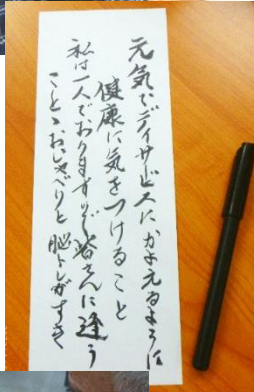 元気でデイサービスにかよえるように
健康に気をつけること
私は一人でおりますので皆さんに逢う
こと、おしゃべりと脳トレがすき